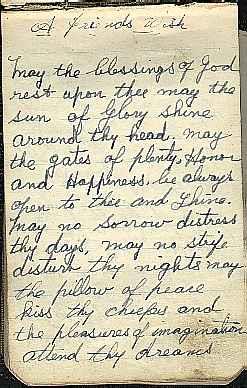 A friends wish
May the blessings of God
rest upon thee may the
sun of Glory shine
around thy head. may
the gates of plenty, Honor
and Happiness, be always
open to thee and Thine.
May no Sorrow distress
thy days, may no strife
disturb thy nights may
the pillow of peace
kiss thy cheekes and
the pleasures of imagination
attend thy dreams